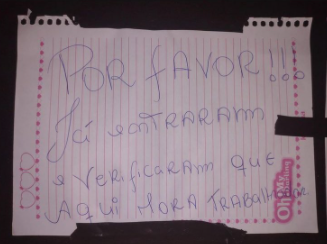 POR FAVOR!!!
Já entraram
e verificaram que
Aqui mora trabalhador
Oh! My